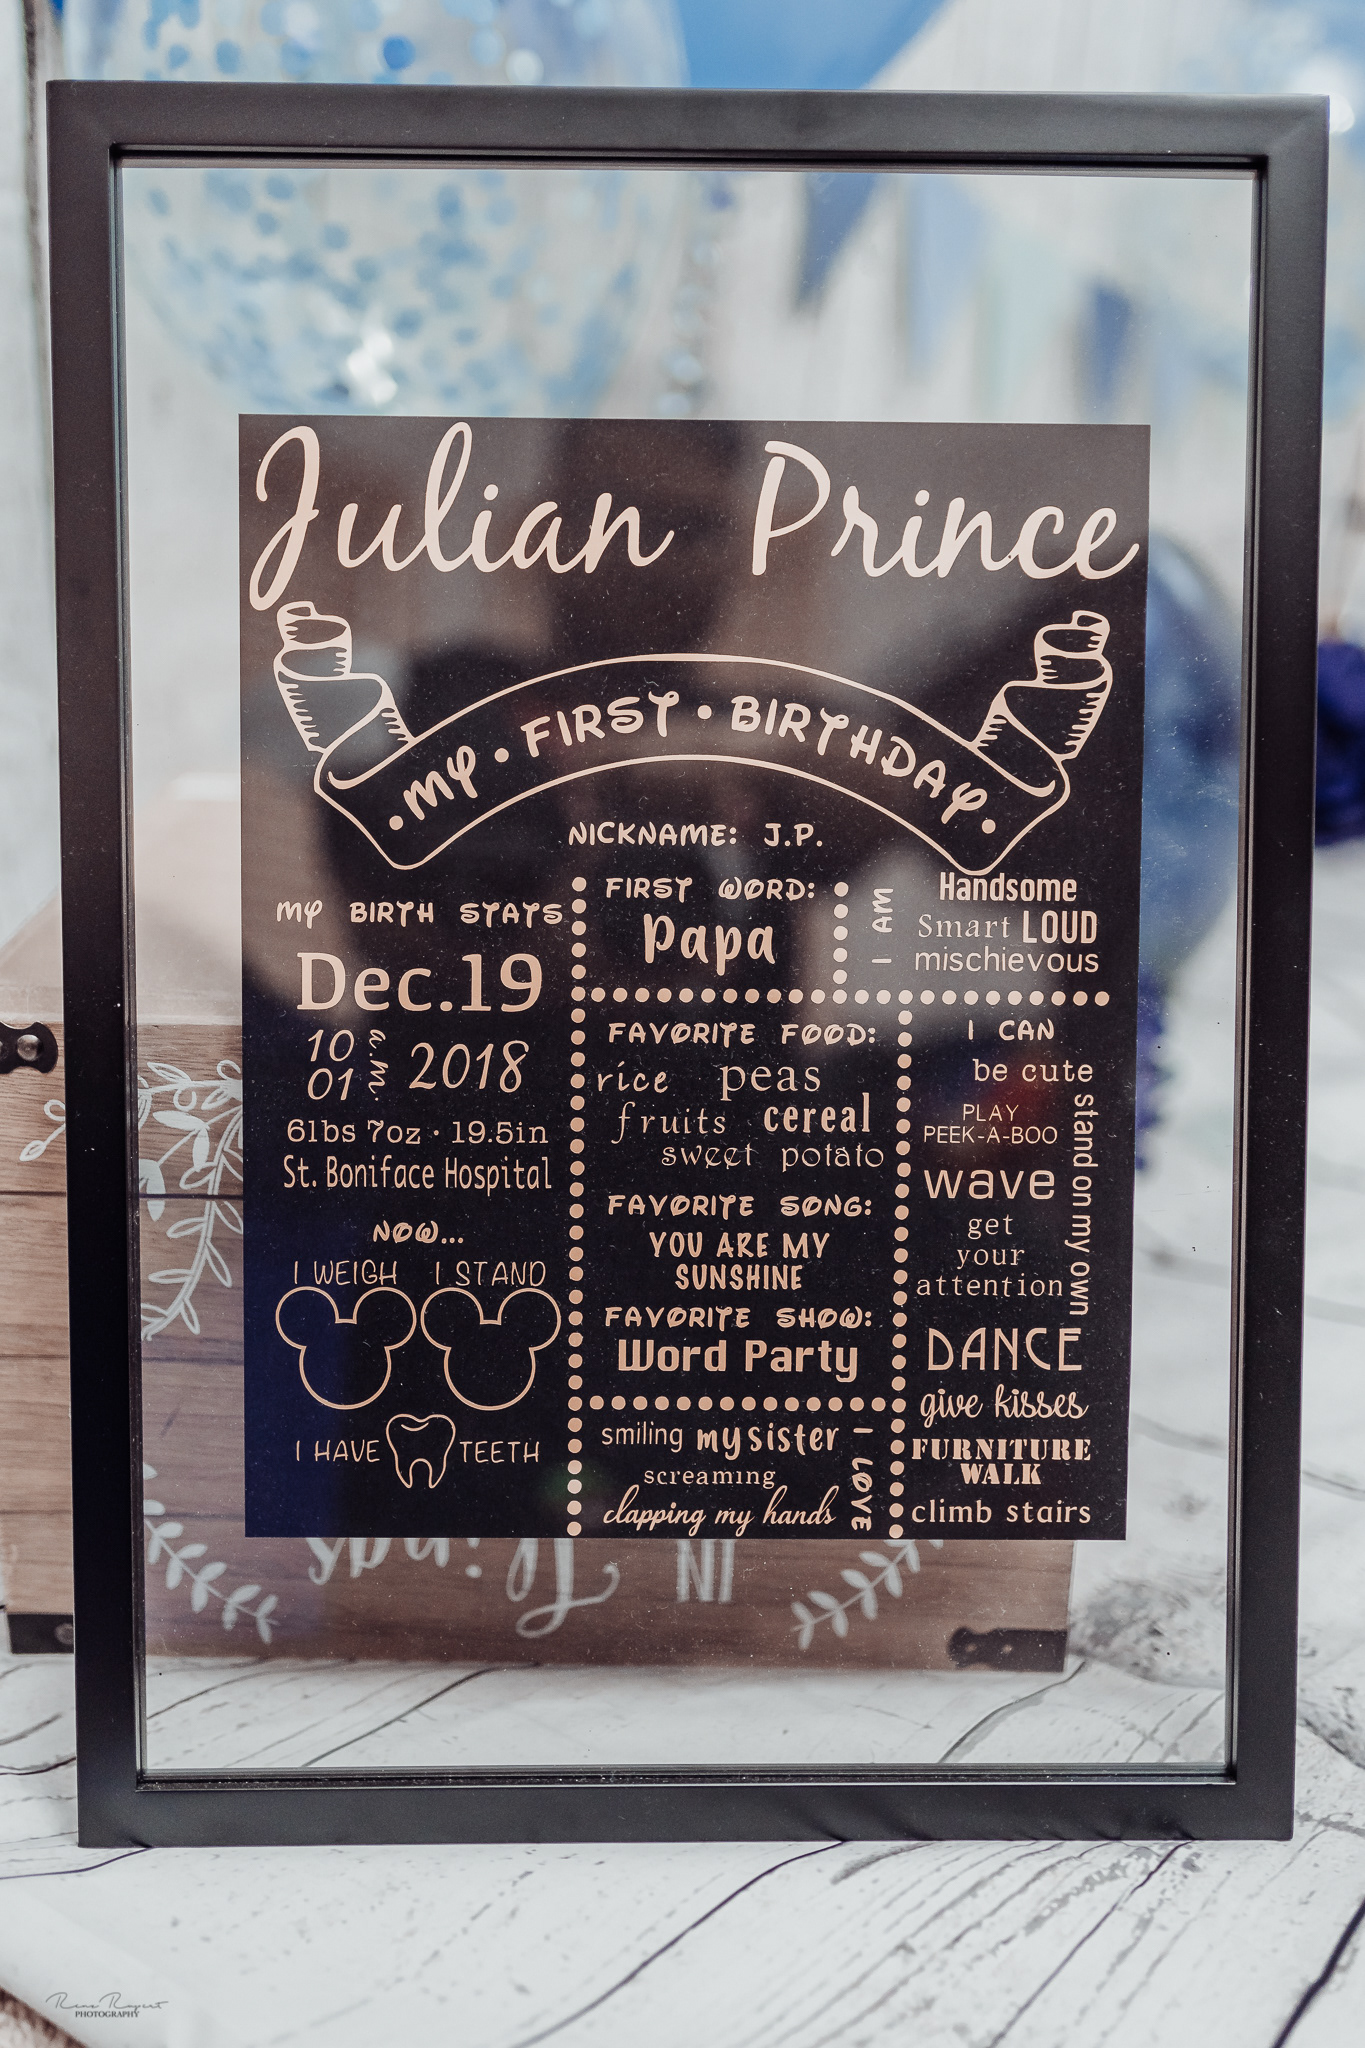 Julian Prince
• MY • FIRST • BIRTHDAY •
NICKNAME: J.P.
MY BIRTH STATS
Dec.19
10 01 a.m. 2018
6lbs 7oz · 19.5in
St. Boniface Hospital
NOW...
I WEIGH I STAND
I HAVE TEETH
FIRST WORD:
Papa
I AM
Handsome
Smart LOUD
mischievous
FAVORITE FOOD:
rice peas
fruits cereal
sweet potato
FAVORITE SONG:
YOU ARE MY
SUNSHINE
FAVORITE SHOW:
Word Party
I LOVE
smiling my sister
screaming
clapping my hands
I CAN
be cute
PLAY
PEEK-A-BOO
stand on my own
wave
get
your
attention
DANCE
give kisses
FURNITURE
WALK
climb stairs
IN
PHOTOGRAPHY